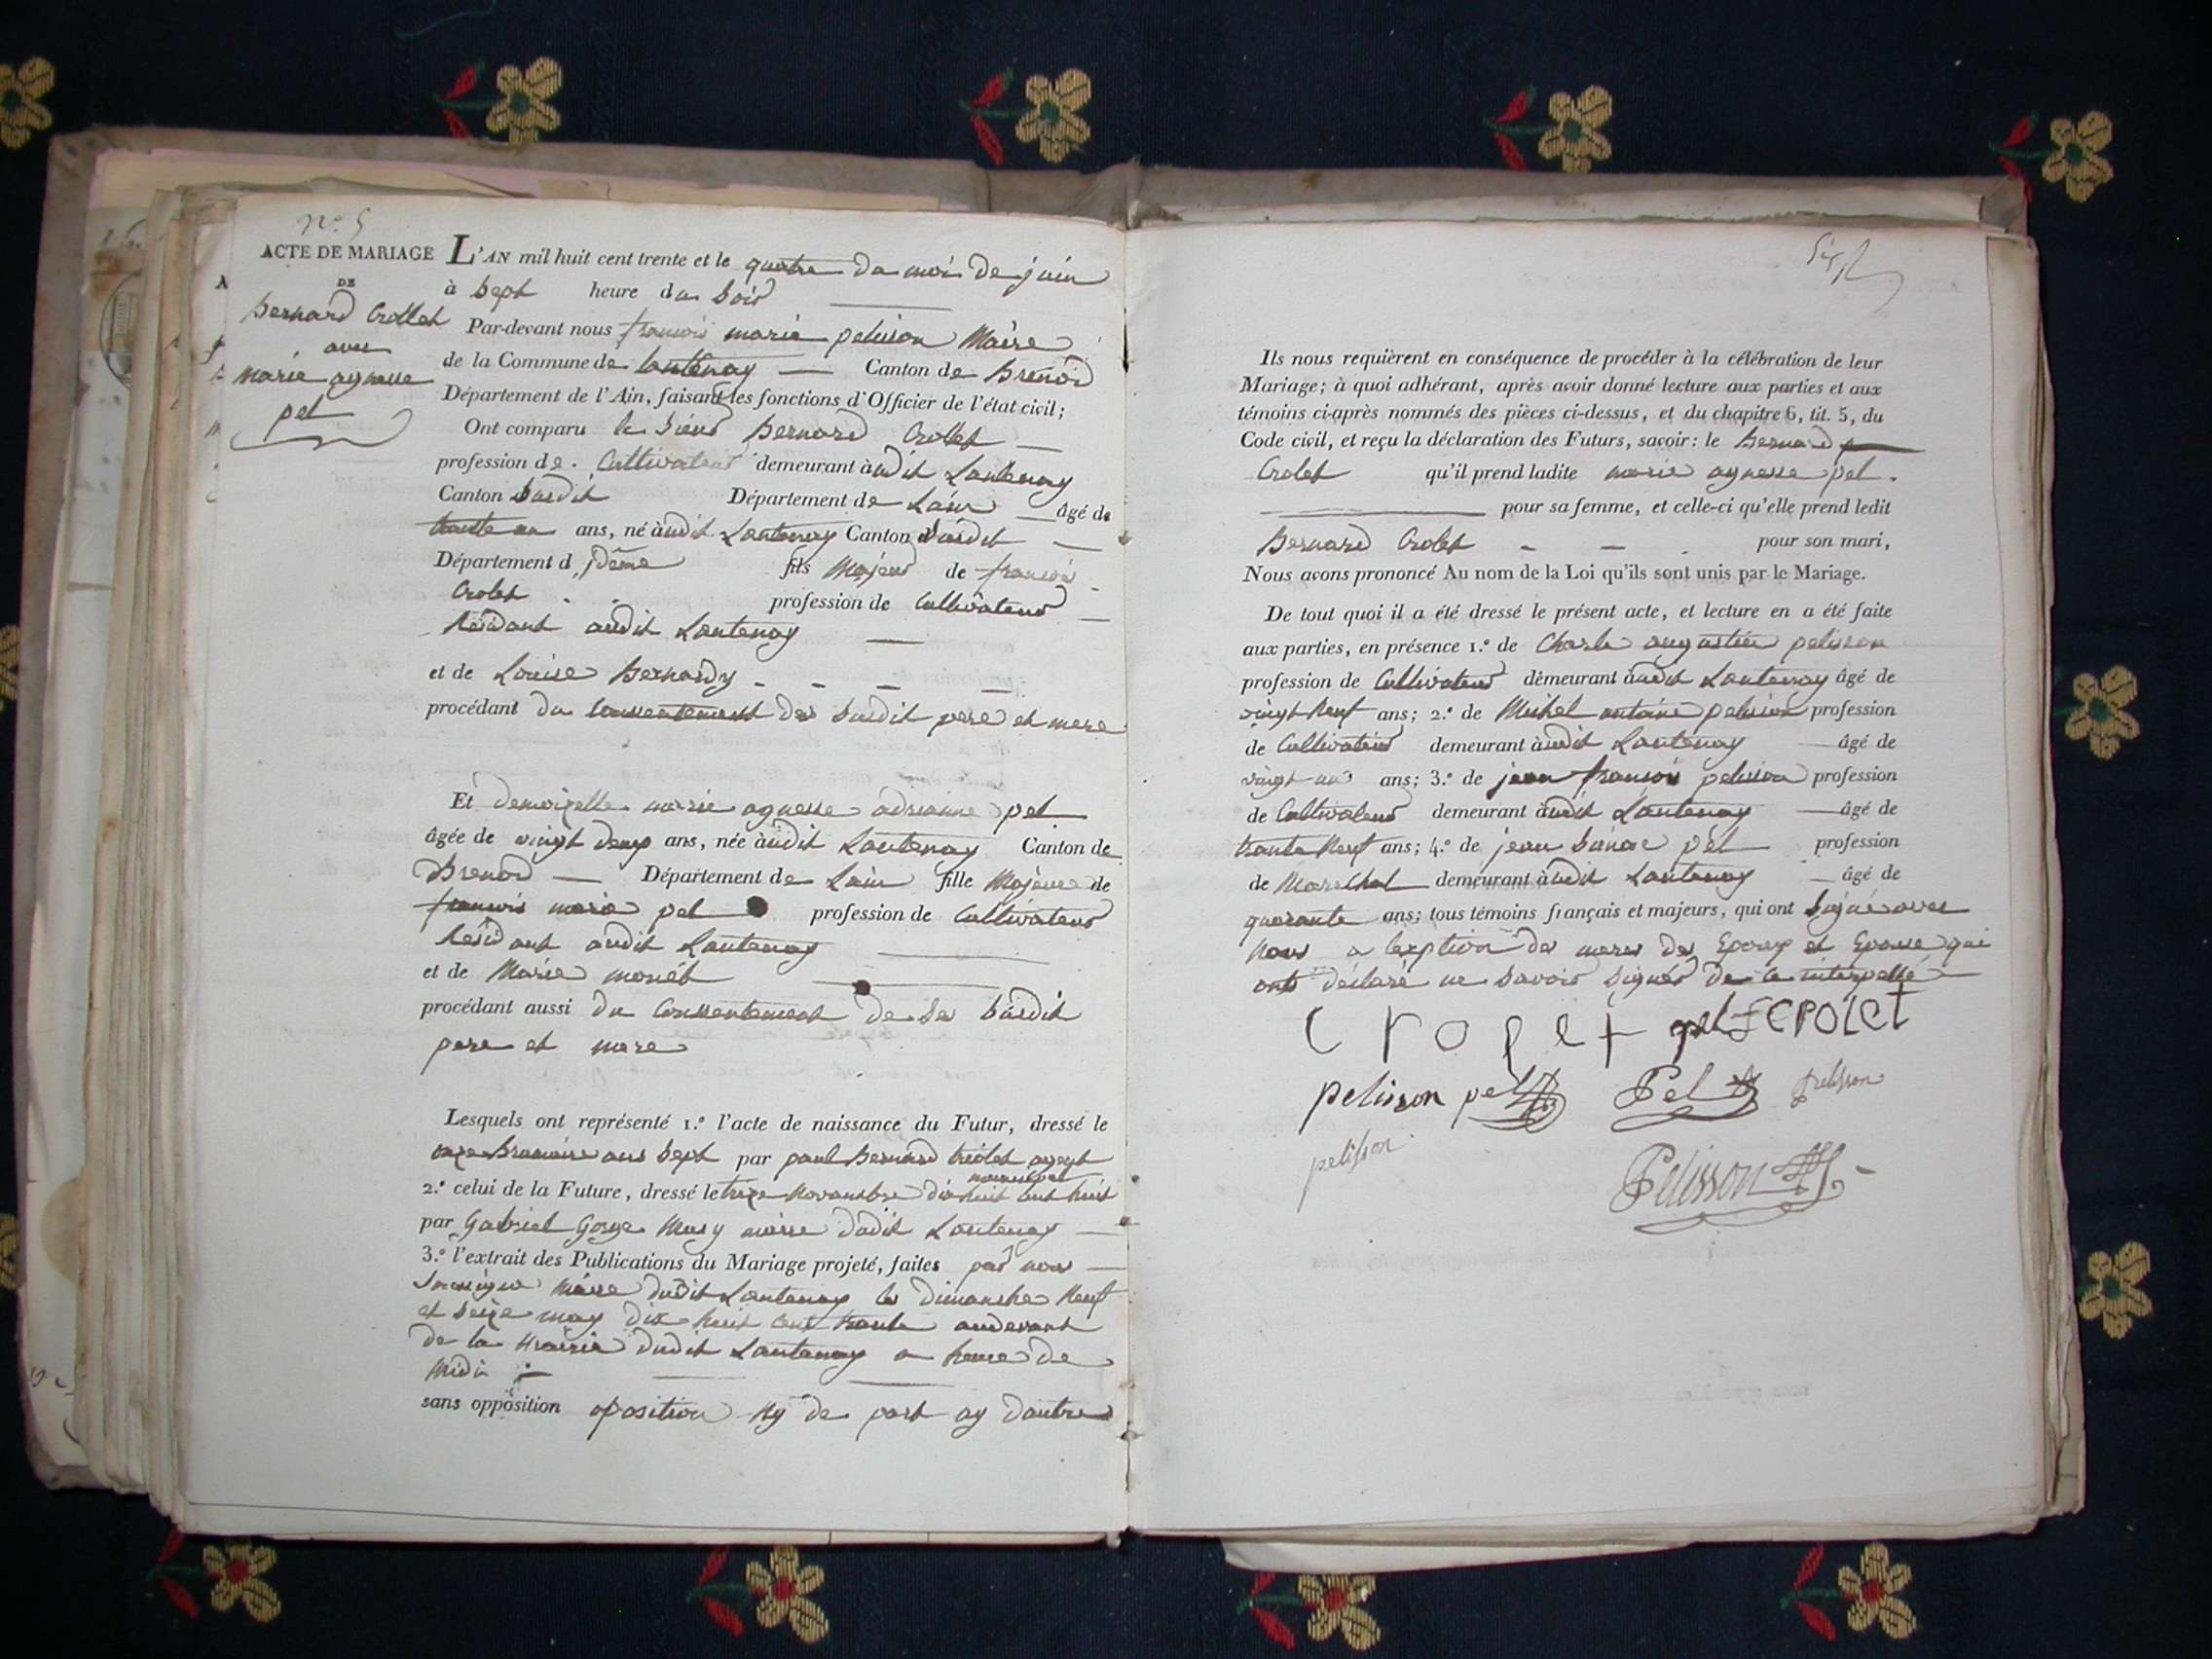 N.o 5
ACTE DE MARIAGE
DE
Bernard Crollet
avec
marie agnesse
pel
L'AN mil huit cent trente et le quatre du mois de juin
à sept heure du soir
Par-devant nous françois marie pelisson Maire
de la Commune de Lantenay Canton de Brenod
Département de l'Ain, faisant les fonctions d'Officier de l'état civil;
Ont comparu le sieur Bernard Crollet
profession de Cultivateur demeurant àudit Lantenay
Canton susdit Département de Lain âgé de
trante un ans, né àudit Lantenay Canton susdit
Département d idême fils Majeur de françois
Crolet profession de Cultivateur
Résidant audit Lantenay
et de Louise Bernardy
procédant du consentement des susdit pere et mere
Et demoizelle marie agnesse adrianne pel
âgée de vingt deux ans, née àudit Lantenay Canton de
Brenod Département de Lain fille Majeure de
francois marie pel profession de Cultivateur
Résidant audit Lantenay
et de Marie moriét
procédant aussi du Consentement de ses susdit
pere et mere
Lesquels ont représenté 1.o l'acte de naissance du Futur, dressé le
onze Brumaire ans sept par paul Bernard triolet agent
municipal
2.o celui de la Future, dressé le treze Novambre dix huit cent huit
par Gabriel Gorge Musy maire dudit Lantenay
3.o l'extrait des Publications du Mariage projeté, faites par nous
soussigné maire dudit Lantenay les dimanche Neuf
et seize may dix huit cent trante audevant
de la mairie dudit Lantenay a heure de
Midi
sans opposition oposition ny de part ny dautre
Ils nous requièrent en conséquence de procéder à la célébration de leur
Mariage; à quoi adhérant, après avoir donné lecture aux parties et aux
témoins ci-après nommés des pièces ci-dessus, et du chapitre 6, tit. 5, du
Code civil, et reçu la déclaration des Futurs, savoir: le Bernard
Crolet qu'il prend ladite marie agnesse pel
pour sa femme, et celle-ci qu'elle prend ledit
Bernard Crolet pour son mari,
Nous avons prononcé Au nom de la Loi qu'ils sont unis par le Mariage.
De tout quoi il a été dressé le présent acte, et lecture en a été faite
aux parties, en présence 1.o de Charle augustin pelisson
profession de Cultivateur demeurant àudit Lantenay âgé de
vingt Neuf ans; 2.o de Michel antoine pelisson profession
de Cultivateur demeurant àudit Lantenay âgé de
vingt un ans; 3.o de jean françois pelisson profession
de Cultivateur demeurant àudit Lantenay âgé de
trante Neuf ans; 4.o de jean pel profession
de Marechal demeurant àudit Lantenay âgé de
quarante ans; tous témoins français et majeurs, qui ont signé avec
nous a lexption des meres des Epoux et Epouse qui
ont déclaré ne savoir signér de ce interpellé
Crolet pel F CROLET
pelisson pel Pel pelisson
pelisson Pelisson